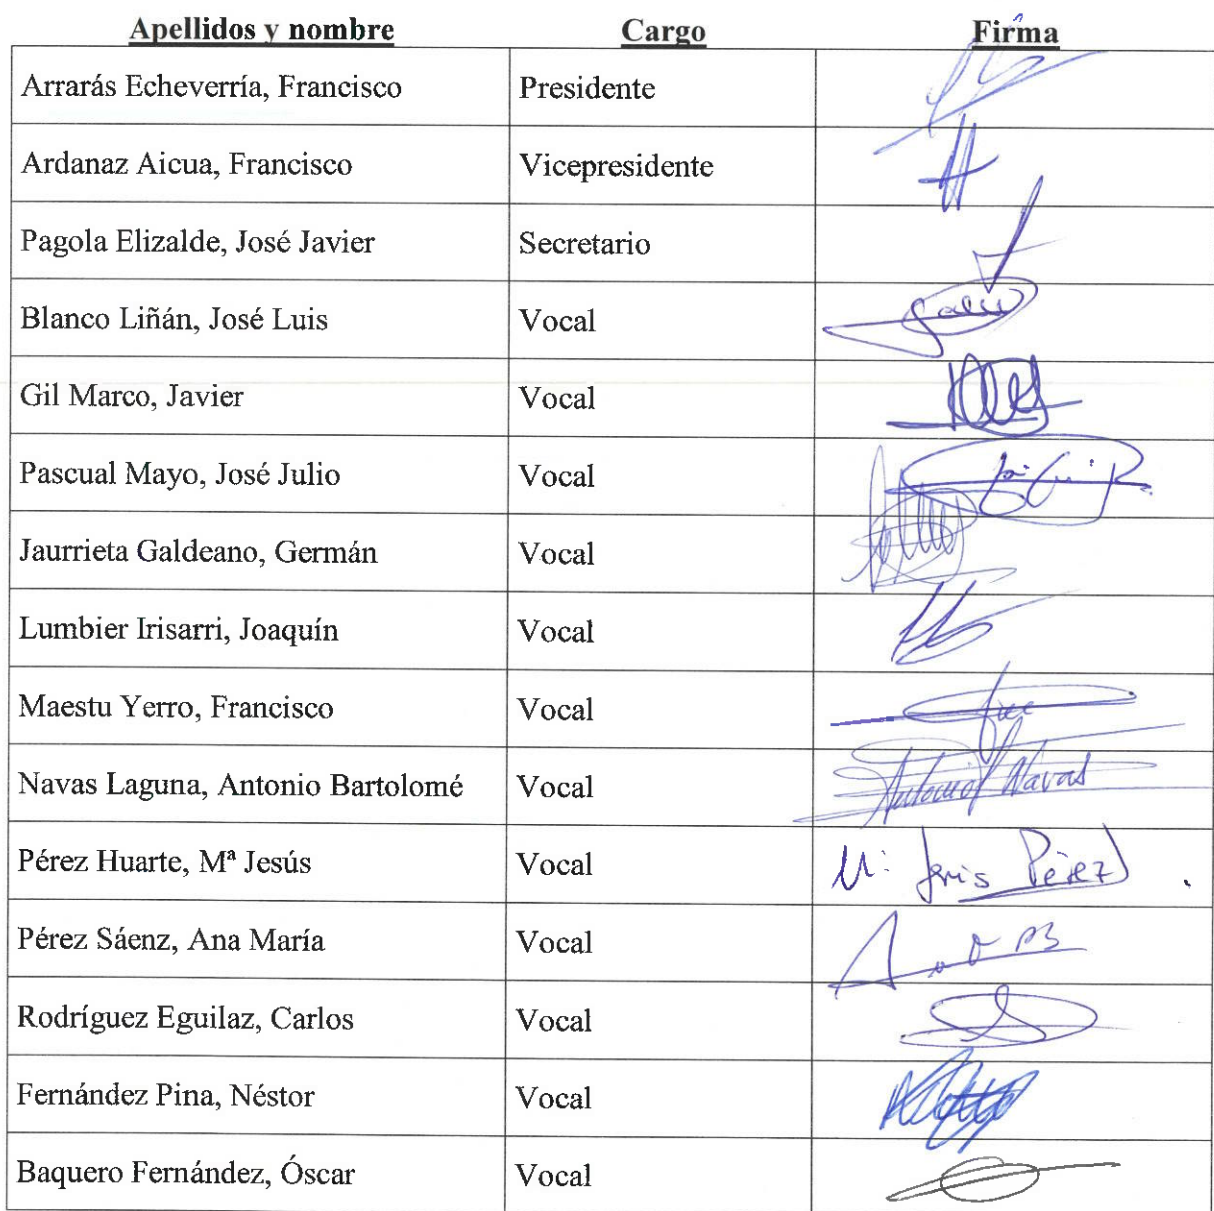 Apellidos y nombre Cargo Firma
Arrarás Echeverría, Francisco Presidente
Ardanaz Aicua, Francisco Vicepresidente
Pagola Elizalde, José Javier Secretario
Blanco Liñán, José Luis Vocal
Gil Marco, Javier Vocal
Pascual Mayo, José Julio Vocal
Jaurrieta Galdeano, Germán Vocal
Lumbier Irisarri, Joaquín Vocal
Maestu Yerro, Francisco Vocal
Navas Laguna, Antonio Bartolomé Vocal Antonio Navas
Pérez Huarte, Mª Jesús Vocal Mª Jesús Pérez
Pérez Sáenz, Ana María Vocal
Rodríguez Eguilaz, Carlos Vocal
Fernández Pina, Néstor Vocal
Baquero Fernández, Óscar Vocal